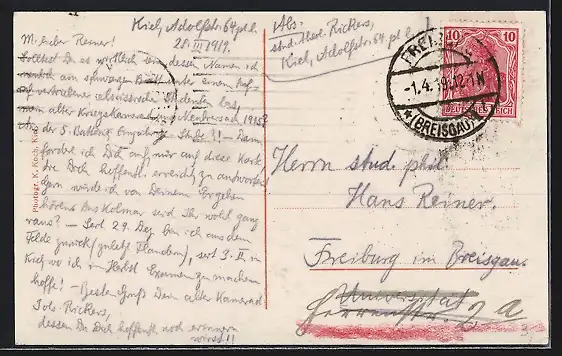 Kiel, Adolfstr. 64 pt. l.
28. III 1919.
Abs:
stud. theol. Rickers,
Kiel, Adolfstr. 64 pt l.
M. lieber Reiner!
Solltest Du es wirklich sein dessen Namen ich
neulich am schwarzen Brett unter einem Auf-
ruf vertriebener elsässischer Studenten las,
mein alter Kriegskamerad 1915?
der 5. Batterie !! – Dann
fordre ich Dich auf, mir auf diese Karte
die Dich hoffentl. erreicht, zu antworten
Gern würde ich von Deinem Ergehen
hören. Aus Kolmar seid Ihr wohl ganz
raus? – Seit 29. Dez. bin ich aus dem
Felde zurück (zuletzt Flandern), seit 3. II. in
Kiel wo ich im Herbst Examen zu machen
hoffe! – Besten Gruß Dein alter Kamerad
Joh. Rickers,
dessen Du Dich hoffentl. noch erinnern
wirst!!
Photogr. K. Koch, Kiel
10 10
DEUTSCHES REICH
FREIBURG
-1.4.19 12-1N
*(BREISGAU)*
Herrn stud. phil.
Hans Reiner.
Freiburg im Breisgau.
Universität
Herrenstr.